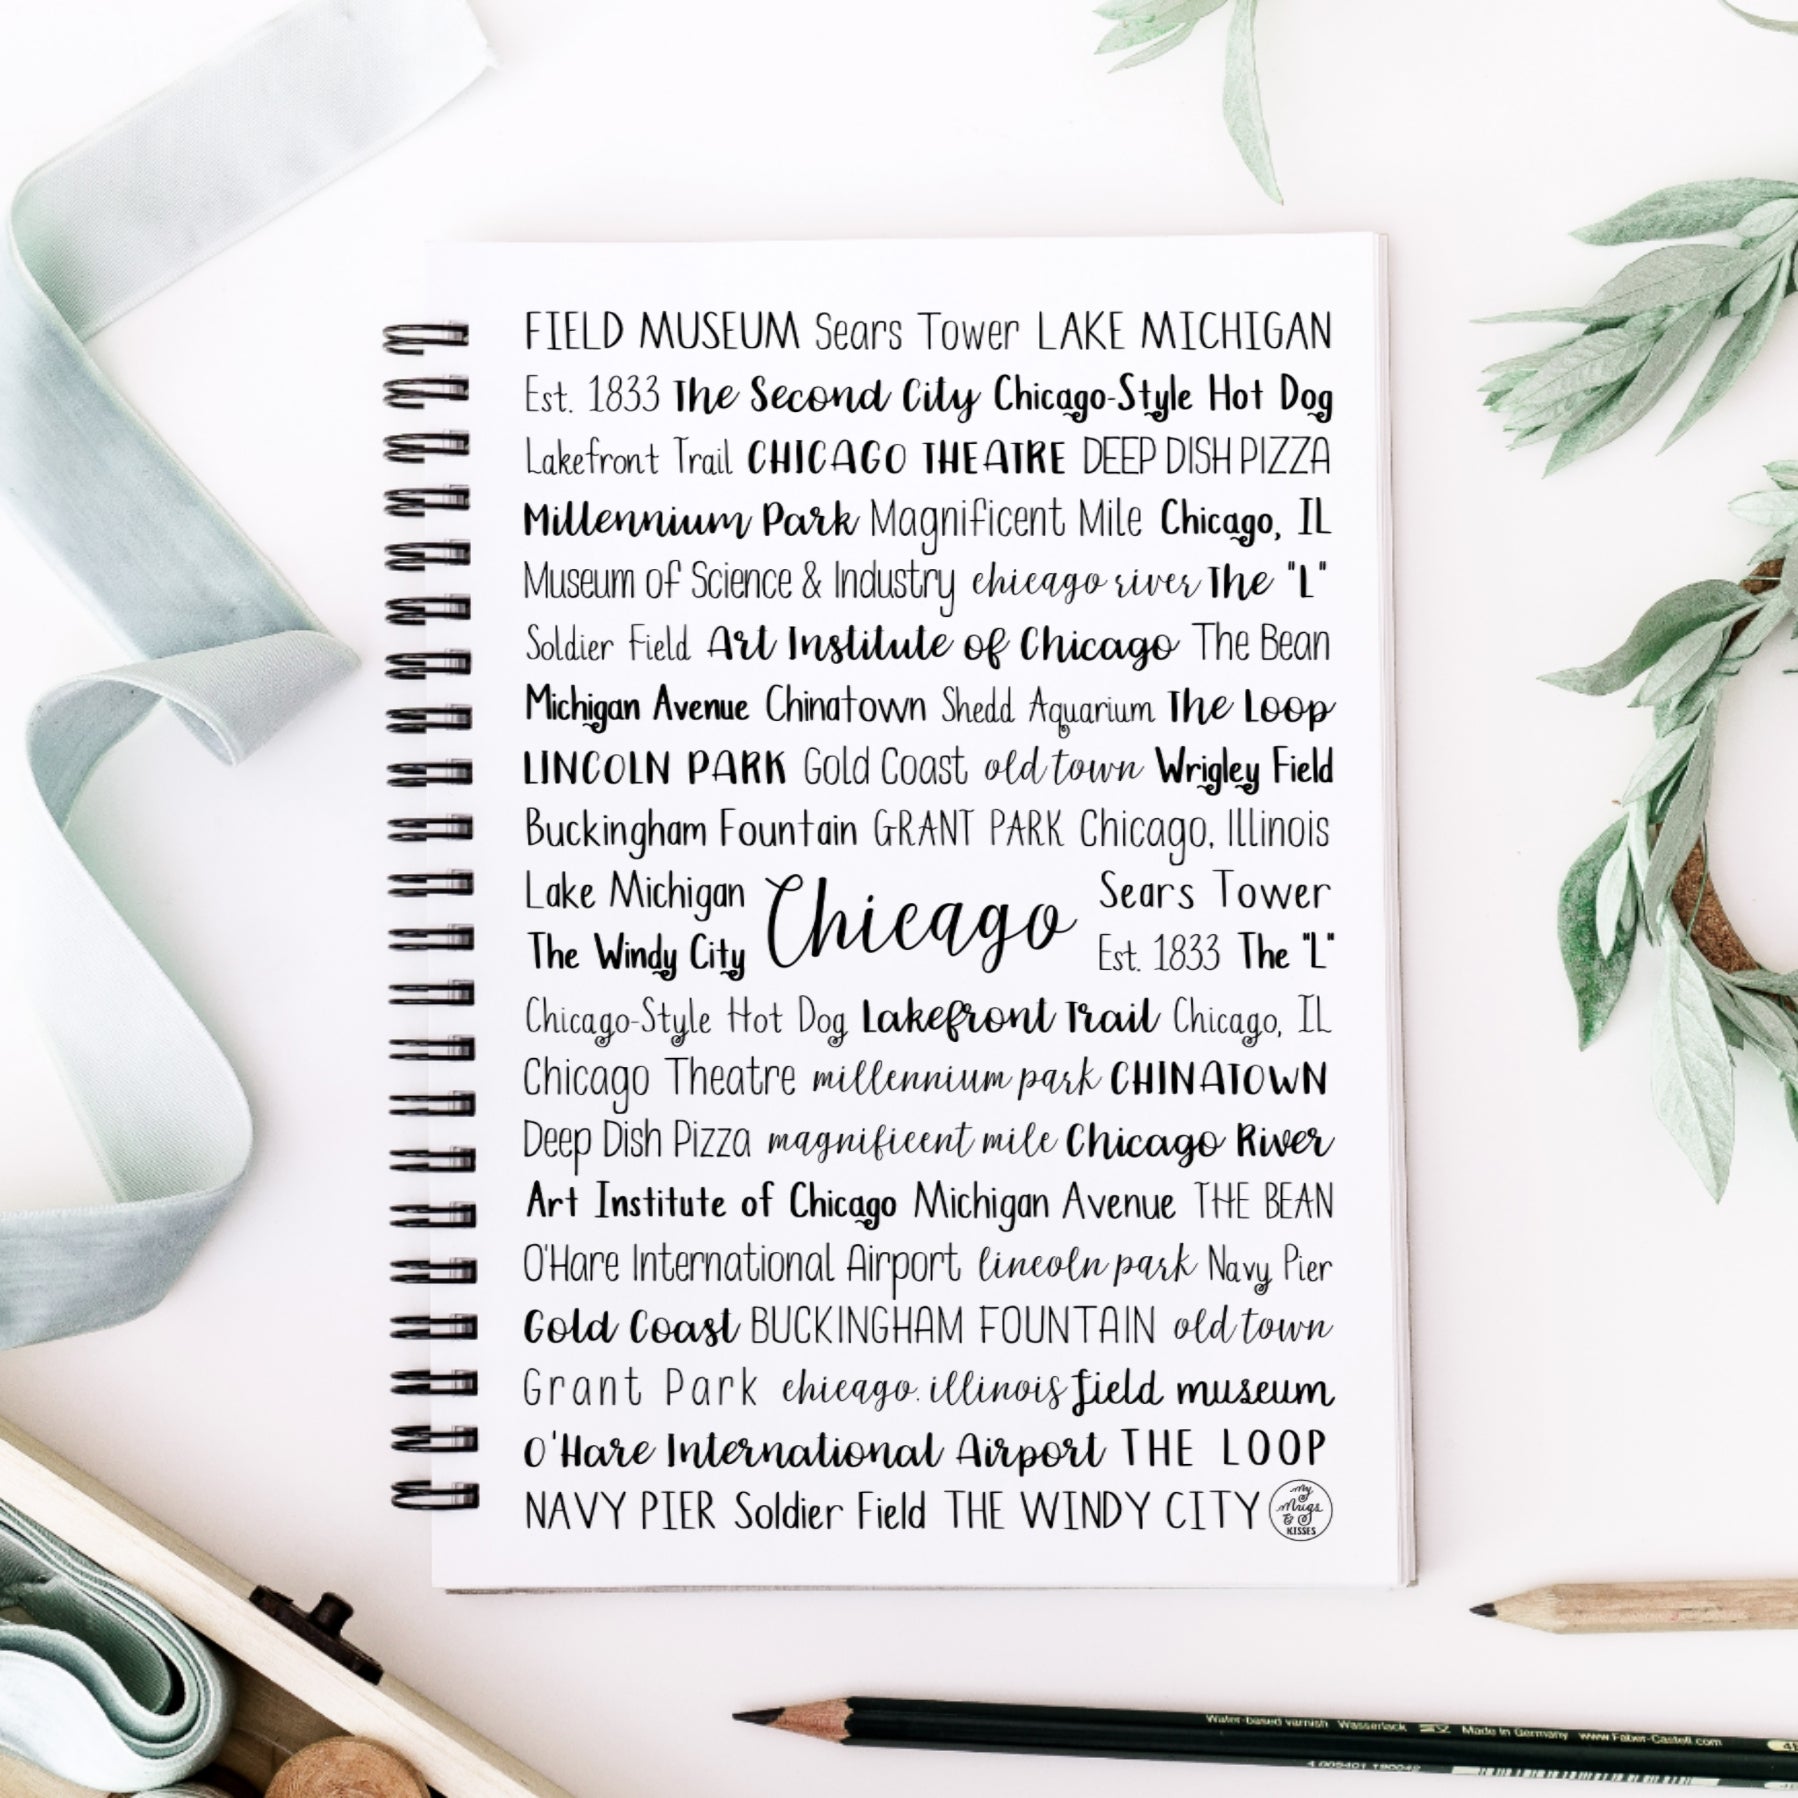 FIELD MUSEUM Sears Tower LAKE MICHIGAN
Est. 1833 The Second City Chicago-Style Hot Dog
Lakefront Trail CHICAGO THEATRE DEEP DISH PIZZA
Millennium Park Magnificent Mile Chicago, IL
Museum of Science & Industry chicago river The "L"
Soldier Field Art Institute of Chicago The Bean
Michigan Avenue Chinatown Shedd Aquarium The Loop
LINCOLN PARK Gold Coast old town Wrigley Field
Buckingham Fountain GRANT PARK Chicago, Illinois
Lake Michigan
The Windy City
Chicago
Sears Tower
Est. 1833 The "L"
Chicago-Style Hot Dog Lakefront Trail Chicago, IL
Chicago Theatre millennium park CHINATOWN
Deep Dish Pizza magnificent mile Chicago River
Art Institute of Chicago Michigan Avenue THE BEAN
O'Hare International Airport lincoln park Navy Pier
Gold Coast BUCKINGHAM FOUNTAIN old town
Grant Park chicago, illinois field museum
O'Hare International Airport THE LOOP
NAVY PIER Soldier Field THE WINDY CITY
My
Mugs
&
KISSES
Water-based varnish Wasserlack Made in Germany www.Faber-Castell.com
4 005401 190042